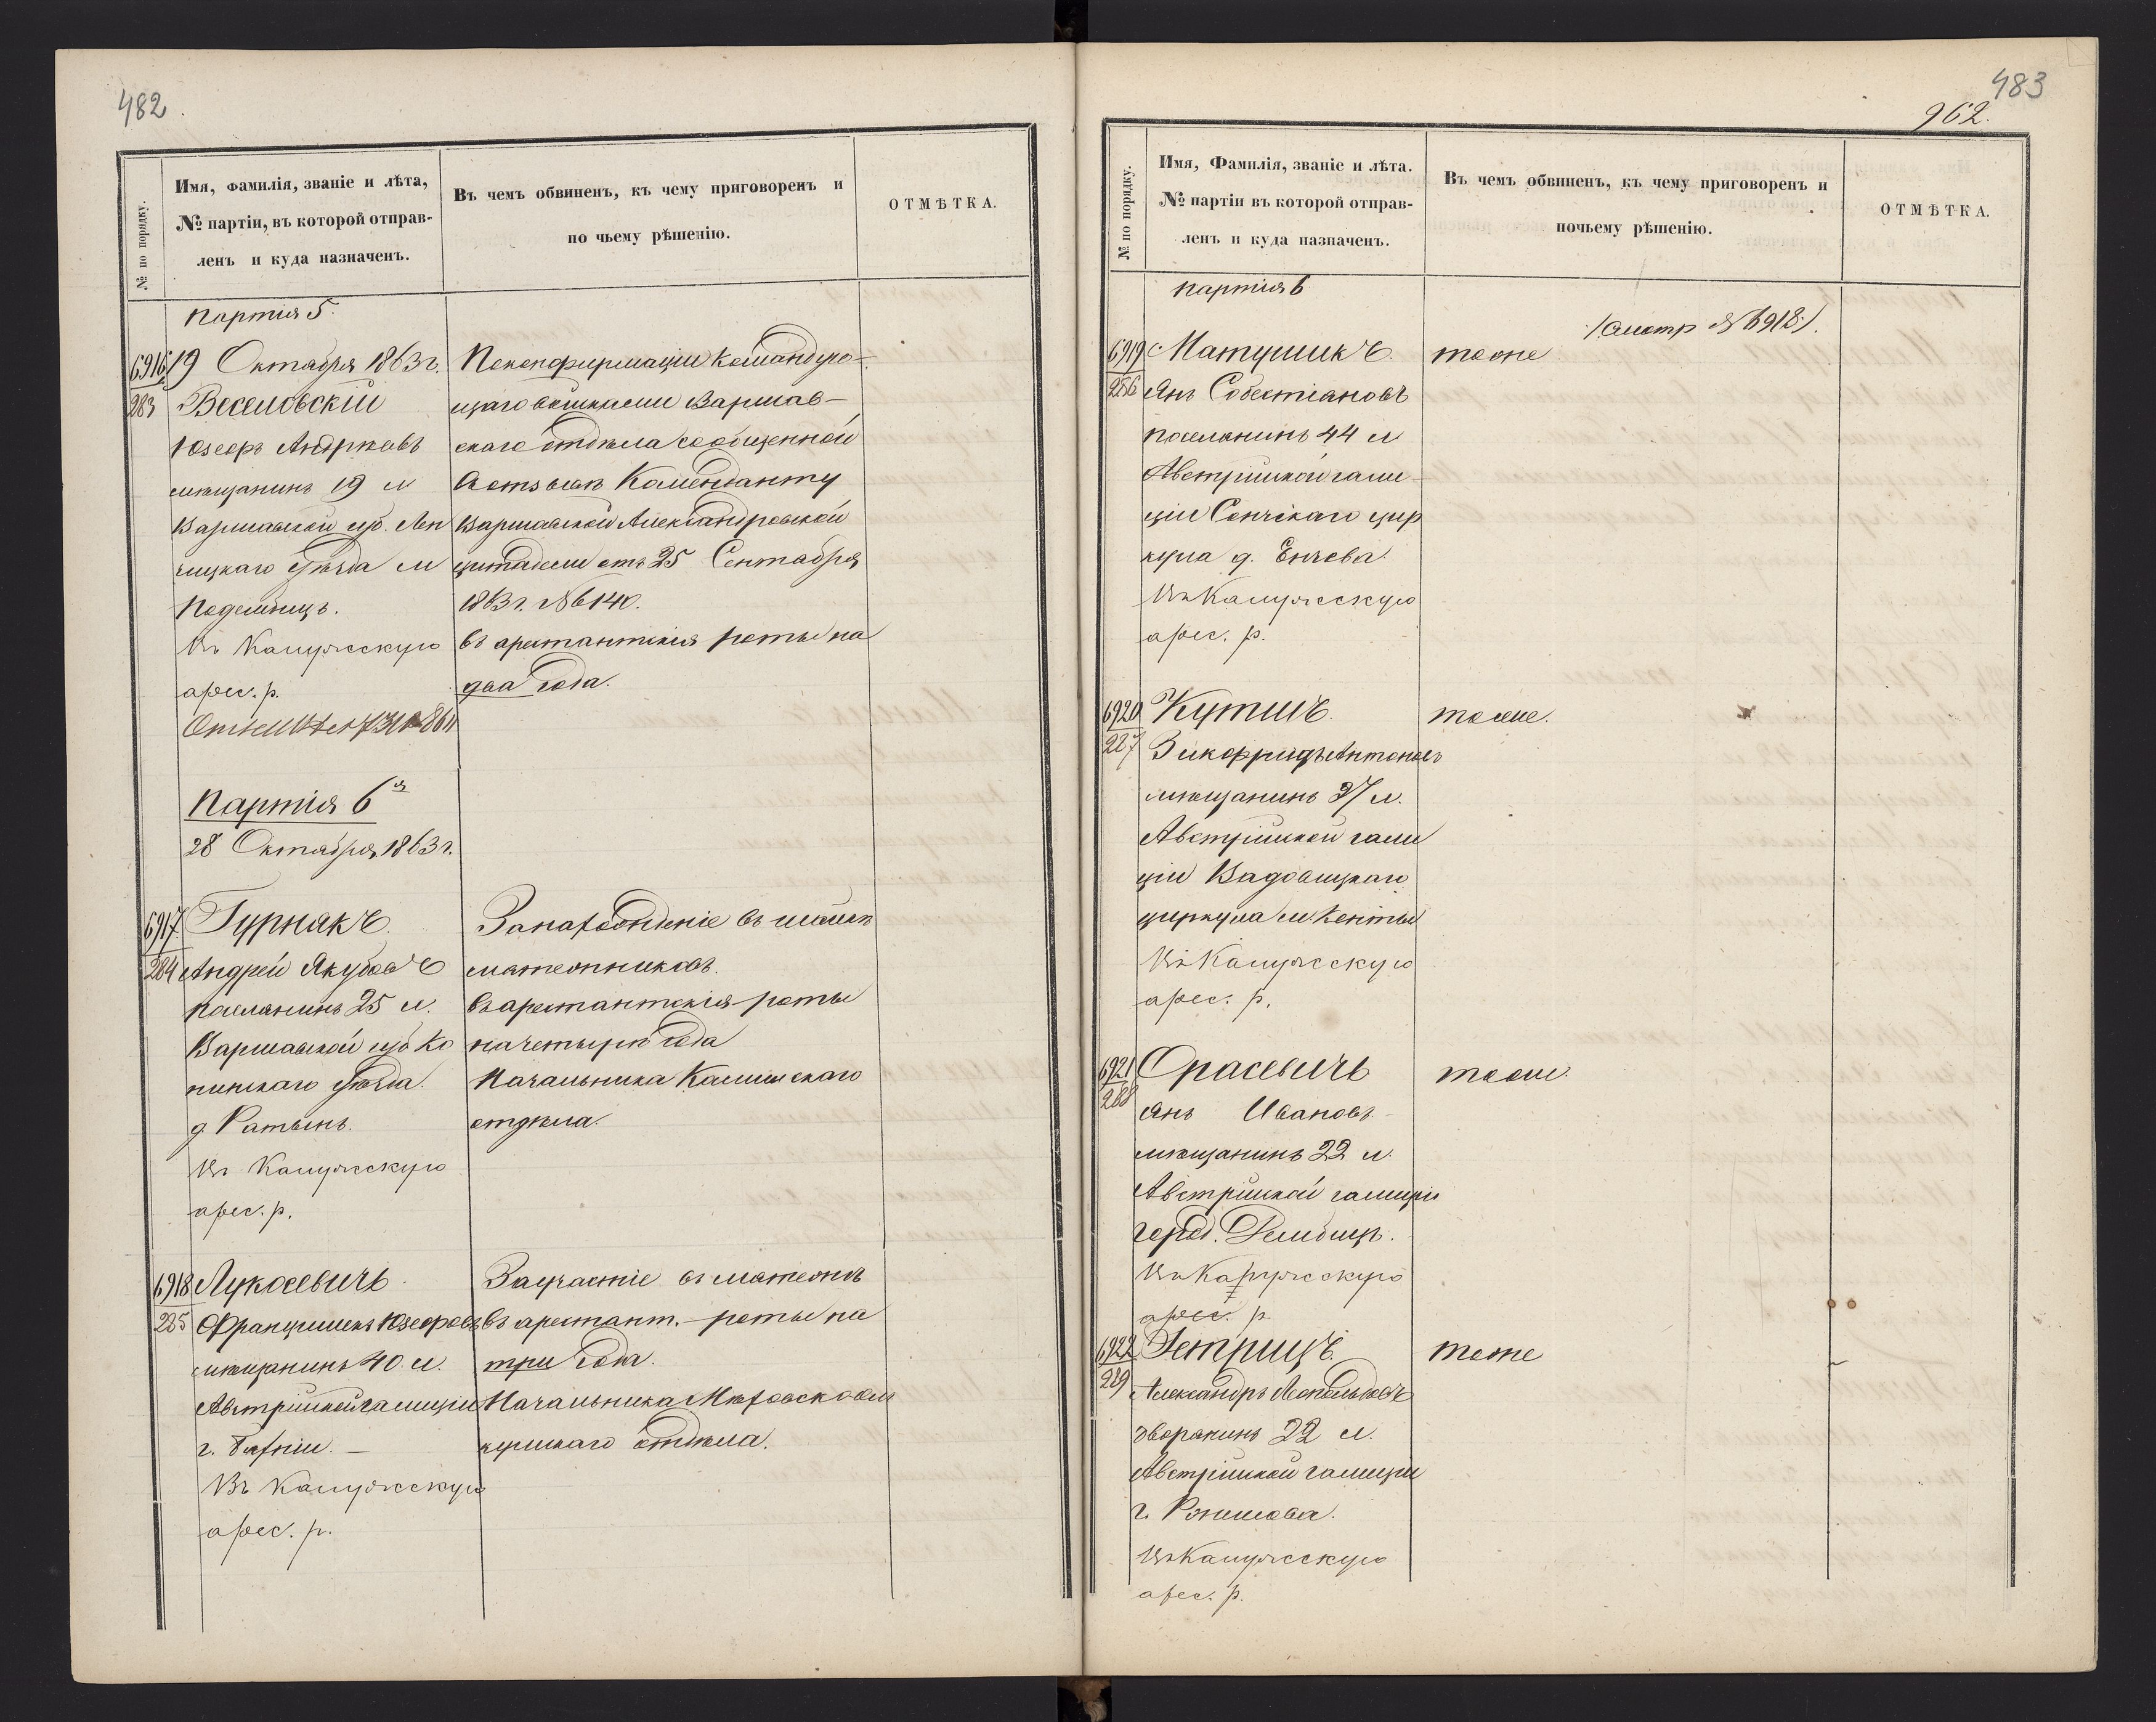 482
№ по порядку.
Имя, фамилія, званіе и лѣта,
№ партіи, въ которой отправ-
ленъ и куда назначенъ.
Въ чемъ обвиненъ, къ чему приговоренъ и
по чьему рѣшенію.
ОТМѢТКА.
Партія 5.
6916
283
19 Октября 1863 г.
Веселовскій
Юзефъ Андржеевъ
мѣщанинъ 19 л
Варшавской губ. Лен
чицкаго уѣзда м
Поддембицъ.
Въ Калужскую
арес. р.
По конфирмаціи Командую-
щаго войсками Варшав-
скаго отдѣла сообщенной
въ отзывѣ Коменданту
Варшавской Александровской
цитадели отъ 25 Сентября
1863 г. № 6140.
въ арестантскія роты на
два года.
Партія 6я
28 Октября 1863 г.
6917
284
Гурнякъ
Андрей Якубовъ
поселянинъ 25 л.
Варшавской губ Ко
нинскаго уѣзда.
д. Ратынь.
Въ Калужскую
арес. р.
За нахожденіе въ шайкѣ
мятежниковъ.
въ арестантскія роты
на четыре года
Начальника Калишскаго
отдѣла.
6918
285
Лукасевичъ
Францишекъ Юзефовъ
мѣщанинъ 40 л.
Австрійской галиціи
г. Бохніи. —
Въ Калужскую
арес. р.
За участіе въ мятежѣ
въ арестант. роты на
три года.
Начальника Мѣховско-Ол
кушскаго отдѣла.
483
962.
№ по порядку.
Имя, Фамилія, званіе и лѣта.
№ партіи въ которой отправ-
ленъ и куда назначенъ.
Въ чемъ обвиненъ, къ чему приговоренъ и
почьему рѣшенію.
ОТМѢТКА.
Партія 6
/смотр № 6918/.
6919
286
Матушикъ
Янъ Собестіановъ
поселянинъ 44 л
Австрійской гали-
ціи Сончскаго цир
кула д.
Въ Калужскую
арес. р.
тоже
6920
287
Кутикъ
Антоновъ
мѣщанинъ 37 л.
Австрійской гали
ціи Вадовицкаго
циркула м. Кенты
Въ Калужскую
арес. р.
тоже.
6921
288
Янъ Ивановъ
мѣщанинъ 22 л.
Австрійской галиціи
город. Дембицъ.
Въ Калужскую
арес. р.
тоже.
6922
289
Гетрицъ
Александръ Леопольдовъ
дворянинъ 22 л.
Австрійской галиціи
г.
Въ Калужскую
арес. р.
тоже